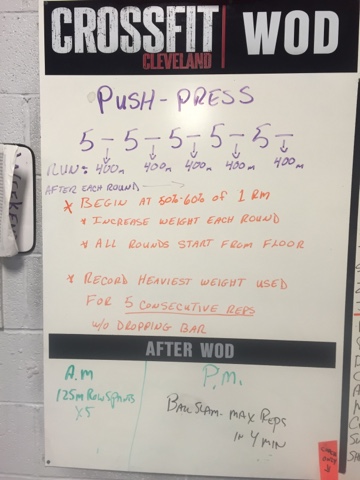 CROSSFIT | WOD
CLEVELAND
PUSH-PRESS
5 - 5 - 5 - 5 - 5 -
RUN: 400m 400m 400m 400m 400m
AFTER EACH ROUND
* BEGIN AT 50%-60% of 1 RM
* INCREASE WEIGHT EACH ROUND
* ALL ROUNDS START FROM FLOOR
* RECORD HEAVIEST WEIGHT USED
FOR 5 CONSECUTIVE REPS
w/o DROPPING BAR
AFTER WOD
A.m
125m Row Sprints
x5
P.M.
BALL SLAM- MAX REPS
IN 4 MIN